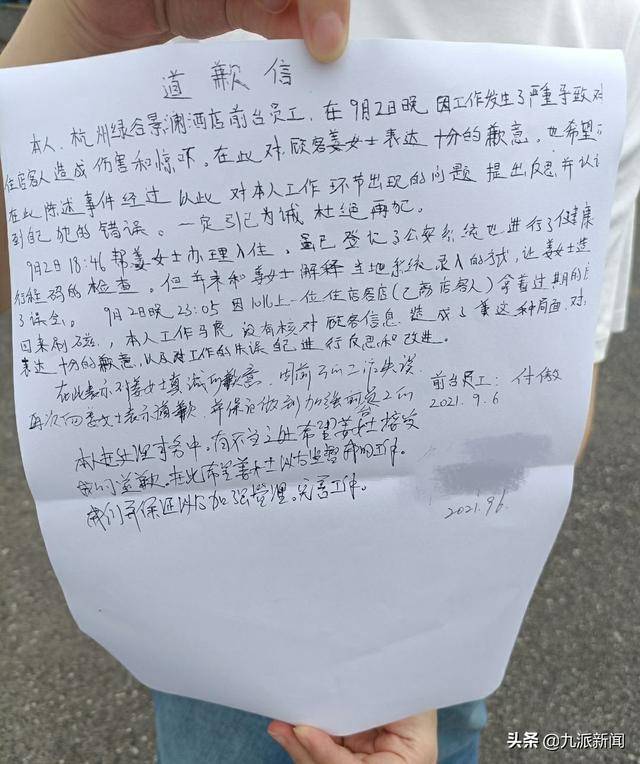 道歉信
本人，杭州绿谷景澜酒店前台员工，在9月2日晚因工作发生了严重导致对
住店客人造成伤害和惊吓。在此对顾客姜女士表达十分的歉意。也希望
在此陈述事件经过以此对本人工作环节出现的问题提出反思并认
到自己犯的错误。一定引已为诫杜绝再犯。
9月2日18:46帮姜女士办理入住，虽已登记了公安系统也进行了健康
行程码的检查。但并未和姜女士解释当地系统录入的方式，让姜女士造
了误会。9月2日晚23:05因1016上一位住店客店(已离店客人)拿着过期的
回来刷磁，本人工作马虎没有核对顾客信息，造成了姜这种局面，对
表达十分的歉意，以及对工作的失误 进行反思和改进。
在此表示对姜女士真诚的歉意，因前台的工作失误
再次向姜女士表示道歉，并保证做到加强前台员工的
前台员工：付傲
2021.9.6
本人在处理事务中，有不当之处希望姜女士接受
我们道歉。在此希望姜女士以后监督我们工作。
我们并保证以后加强管理。完善工作。
2021.9.6.
头条 @九派新闻